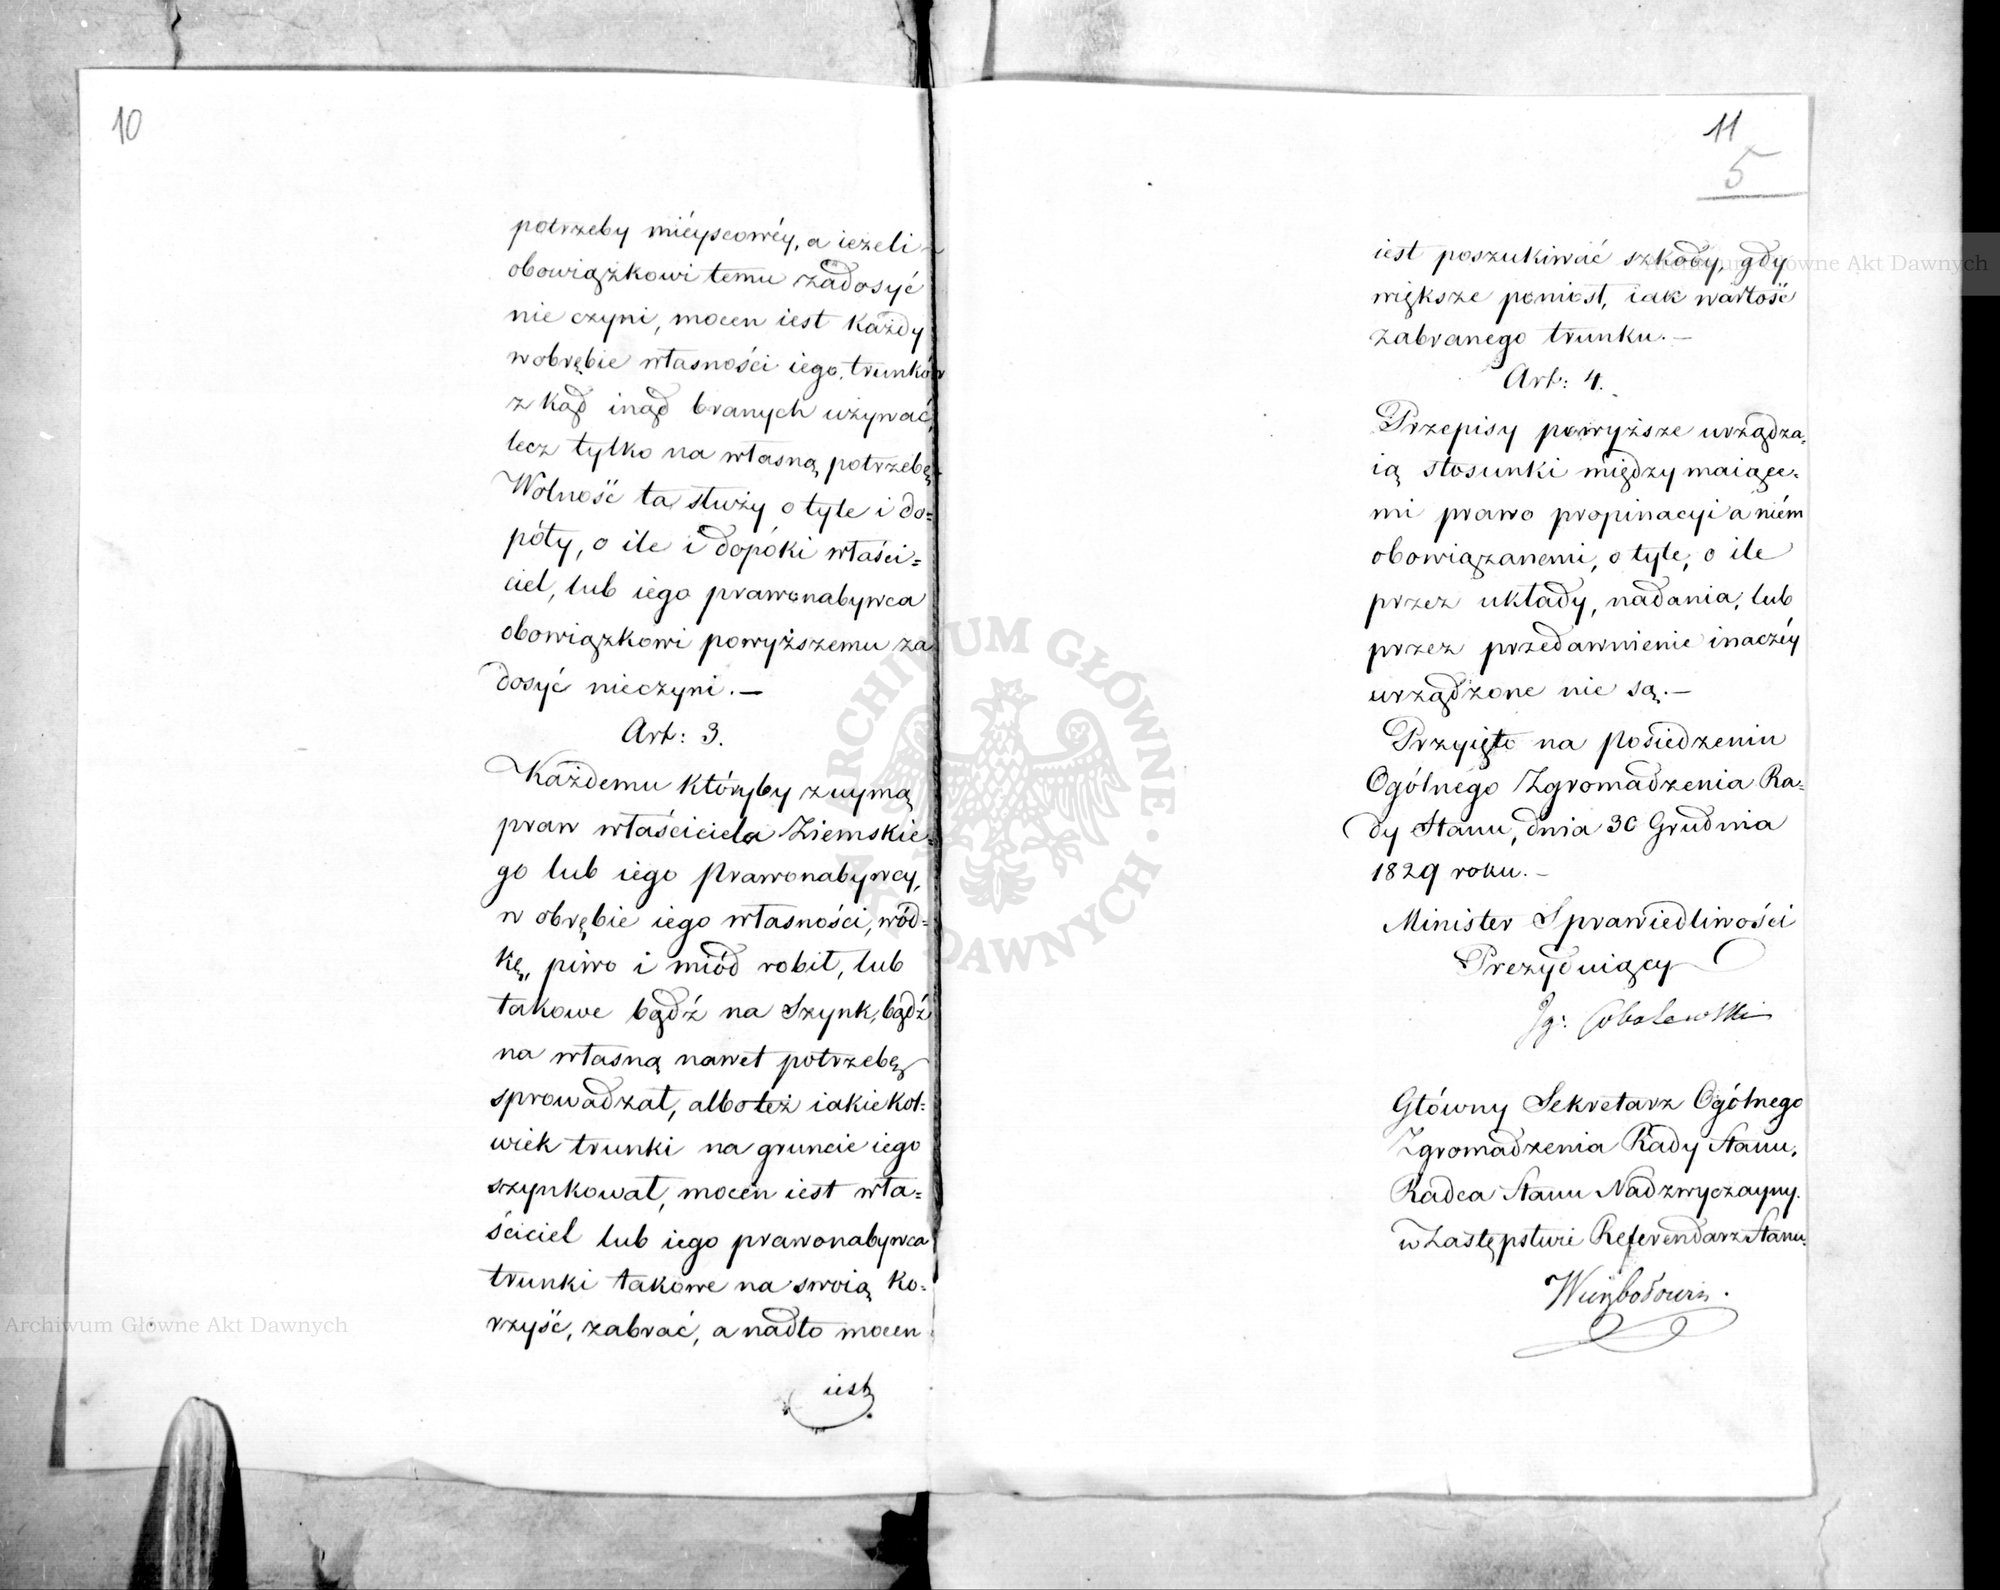 10
potrzeby miéyscowéy, a ieżeli
obowiązkowi temu zadosyć
nie czyni, mocen iest każdy
w obrębie własności iego, trunków
z kąd inąd branych używać,
lecz tylko na własną potrzebę.
Wolność ta służy o tyle i do=
póty, o ile i dopóki właści=
ciel, lub iego prawonabywca
obowiązkowi powyższemu za
dosyć nieczyni. —
Art: 3.
Każdemu któryby z uymą
praw właściciela Ziemskie=
go lub iego prawonabywcy,
w obrębie iego własności, wód=
kę, piwo i miód robił, lub
takowe bądź na Szynk, bądź
na własną nawet potrzebę
sprowadzał, albo też iakiekol=
wiek trunki na gruncie iego
szynkował, mocen iest wła=
ściciel lub iego prawonabywca
trunki takowe na swoią ko=
rzyść, zabrać, a nadto mocen
iest
11
5
iest poszukiwać szkody, gdy
większe poniósł, iak wartość
zabranego trunku. —
Art: 4.
Przepisy powyższe urządza=
ią stosunki między maiące=
mi prawo propinacyi a niém
obowiązanemi, o tyle, o ile
przez układy, nadania, lub
przez przedawnienie inaczéy
urządzone nie są. —
Przyięto na posiedzeniu
Ogólnego Zgromadzenia Ra=
dy Stanu, dnia 30 Grudnia
1829 roku. —
Minister Sprawiedliwości
Prezyduiący
Ig: Sobolewski
Główny Sekretarz Ogólnego
Zgromadzenia Rady Stanu,
Radca Stanu Nadzwyczayny.
w Zastępstwie Referendarz Stanu.
Archiwum Główne Akt Dawnych
Archiwum Główne Akt Dawnych
ARCHIWUM GŁÓWNE AKT DAWNYCH